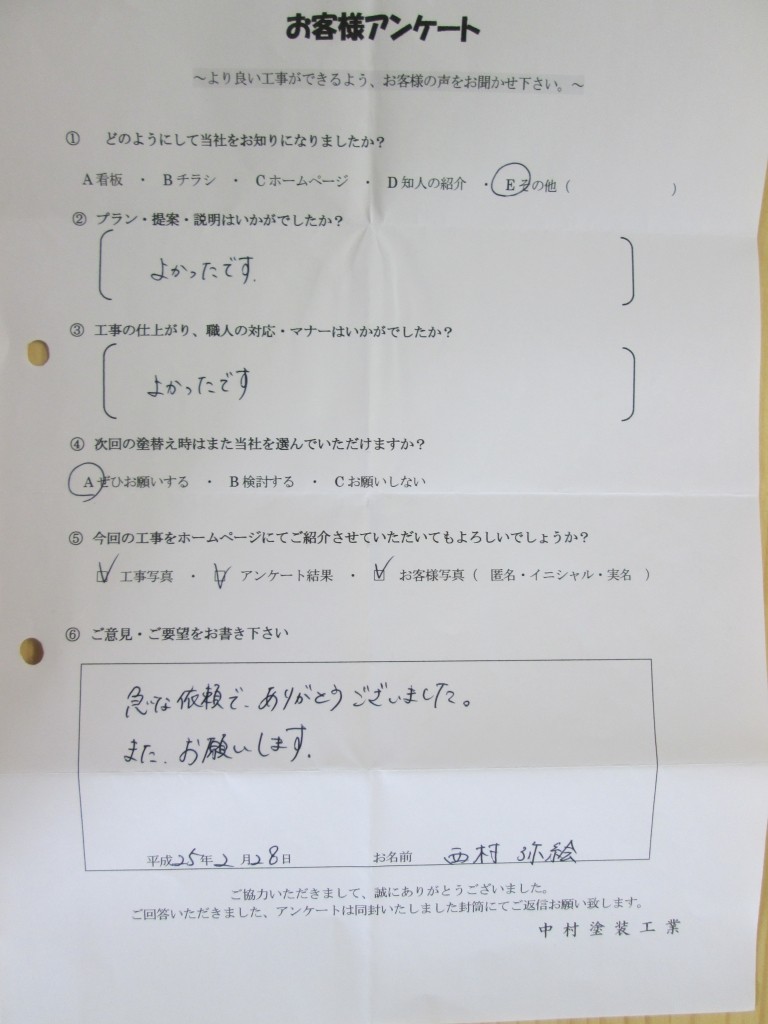 お客様アンケート
～より良い工事ができるよう、お客様の声をお聞かせ下さい。～
① どのようにして当社をお知りになりましたか？
A看板 ・ Bチラシ ・ Cホームページ ・ D知人の紹介 ・ Eその他（ ）
② プラン・提案・説明はいかがでしたか？
よかったです.
③ 工事の仕上がり、職人の対応・マナーはいかがでしたか？
よかったです
④ 次回の塗替え時はまた当社を選んでいただけますか？
Aぜひお願いする ・ B検討する ・ Cお願いしない
⑤ 今回の工事をホームページにてご紹介させていただいてもよろしいでしょうか？
☑ 工事写真 ・ ☑ アンケート結果 ・ ☑ お客様写真（ 匿名・イニシャル・実名 ）
⑥ ご意見・ご要望をお書き下さい
急な依頼で、ありがとうございました。
また、お願いします.
平成25年2月28日 お名前 西村 弥絵
ご協力いただきまして、誠にありがとうございました。
ご回答いただきました、アンケートは同封いたしました封筒にてご返信お願い致します。
中村塗装工業